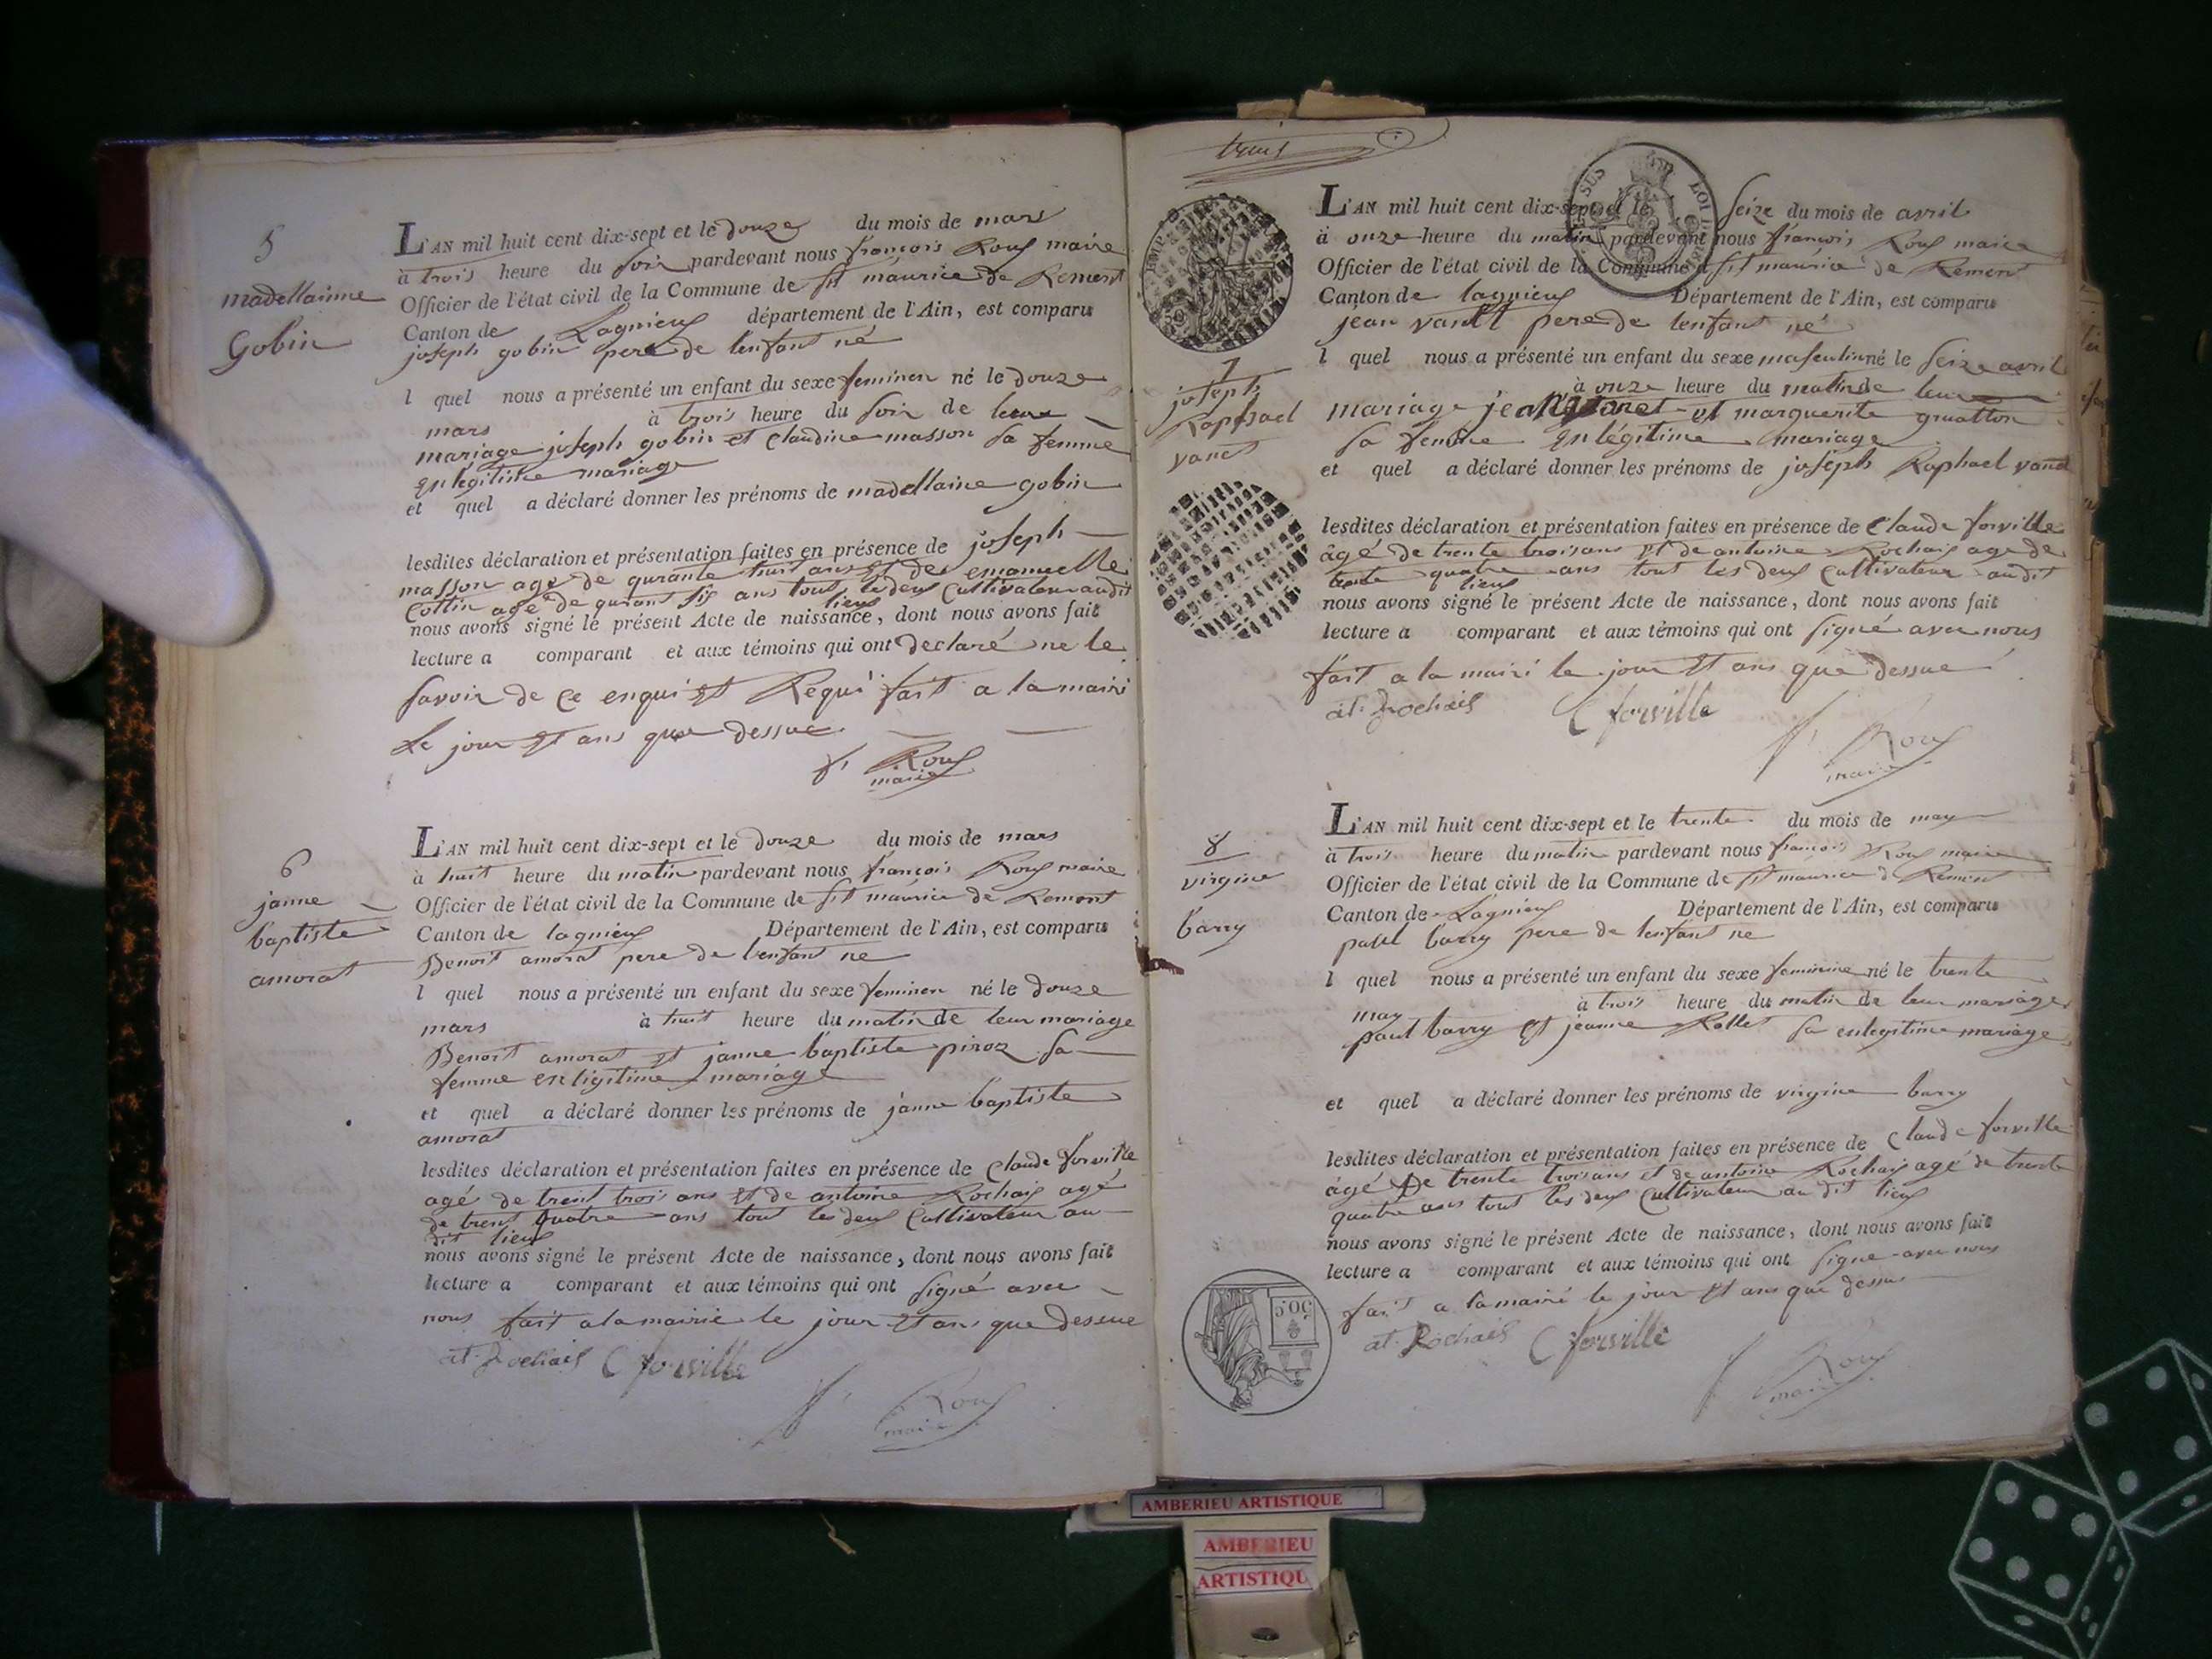 5
madellainne
Gobin
L'AN mil huit cent dix-sept et le douze du mois de mars
à trois heure du soir pardevant nous françois Roux maire
Officier de l'état civil de la Commune de st maurice de Remens
Canton de Lagnieux département de l'Ain, est comparu
joseph gobin pere de lenfant né
l quel nous a présenté un enfant du sexe feminen né le douze
mars à trois heure du soir de leur
mariage joseph gobin et Claudine masson sa femme
en légitime mariage
et quel a déclaré donner les prénoms de madellaine gobin
lesdites déclaration et présentation faites en présence de joseph
masson age de qurante huit ans et de emanuelle
Cottin age de qurant six ans tout les deux Cultivateur audit
lieux
nous avons signé le présent Acte de naissance, dont nous avons fait
lecture a comparant et aux témoins qui ont declaré ne le
savoir de ce enqui et Requi fait a la mairi
Le jour et ans que dessue
f. Roux
maire
6
janne
baptiste
amorat
L'AN mil huit cent dix-sept et le douze du mois de mars
à huit heure du matin pardevant nous françois Roux maire
Officier de l'état civil de la Commune de st maurice de Remont
Canton de lagnieux Département de l'Ain, est comparu
Benoit amorat pere de lenfant ne
l quel nous a présenté un enfant du sexe feminen né le douze
mars à huit heure du matin de leur mariage
Benoit amorat et janne baptiste piroz sa
femme en ligitime mariage
et quel a déclaré donner les prénoms de janne baptiste
amorat
lesdites déclaration et présentation faites en présence de Claude forville
agé de trent trois ans et de antoine Rochaix agé
de trent quatre ans tout les deux Cultivateur au
dit lieux
nous avons signé le présent Acte de naissance, dont nous avons fait
lecture a comparant et aux témoins qui ont signé avec
nous fait a la mairie le jour et ans que dessue
at. Rochaix C forville
f. Roux
maire
trois
SUS LOI
7
joseph
Raphael
vanet
L'AN mil huit cent dix-sept et le seize du mois de avril
à onze heure du matin pardevant nous françois Roux maire
Officier de l'état civil de la Commune d st maurice de Remens
Canton de lagnieux Département de l'Ain, est comparu
jean vanet pere de lenfant né
l quel nous a présenté un enfant du sexe masculin né le seize avril
à onze heure du matin de leur
mariage jean et marguerite gruatton
sa femme en légitime mariage
et quel a déclaré donner les prénoms de joseph Raphael vanet
lesdites déclaration et présentation faites en présence de Claude forville
âgé de trente trois ans et de antoine Rochaix age de
trente quatre ans tout les deux Cultivateur audit
lieux
nous avons signé le présent Acte de naissance, dont nous avons fait
lecture a comparant et aux témoins qui ont signé avec nous
fait a la mairi le jour et ans que dessue
at. Rochaix C forville
f. Roux
maire
8
virgine
barry
L'AN mil huit cent dix-sept et le trente du mois de may
à trois heure du matin pardevant nous françois Roux maire
Officier de l'état civil de la Commune de st maurice de Remens
Canton de Lagnieux Département de l'Ain, est comparu
paul barry pere de lenfant ne
l quel nous a présenté un enfant du sexe feminine né le trente
may à trois heure du matin de leur mariage
paul barry et jeanne Rollet sa en legitime mariage
et quel a déclaré donner les prénoms de virgine barry
lesdites déclaration et présentation faites en présence de Claude forville
âgé de trente trois ans et de antoine Rochaix agé de trente
quatre ans tout les deux Cultivateur au dit lieux
nous avons signé le présent Acte de naissance, dont nous avons fait
lecture a comparant et aux témoins qui ont signe avec nous
fait a la mairi le jour et ans que dessue
at. Rochaix C forville
f. Roux
maire
50c
AMBERIEU ARTISTIQUE
AMBERIEU
ARTISTIQU